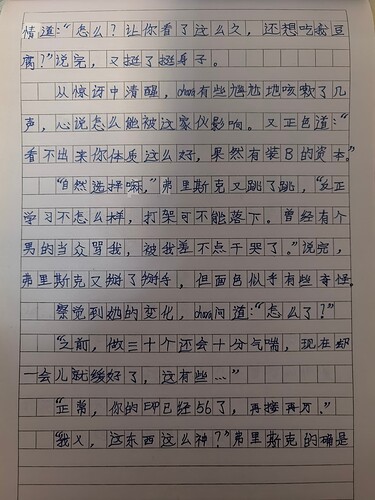 情道:“怎么?让你看了这么久,还想吃我豆
腐?”说完,又挺了挺身子。
从惊讶中清醒,chara有些尴尬地咳嗽了几
声,心说怎么能被这家伙影响。又正色道:“
看不出来你体质这么好,果然有装B的资本。”
“自然选择嘛,”弗里斯克又跳了跳,“反正
学习不怎么样,打架可不能落下。曾经有个
男的当众骂我,被我差不点干哭了。”说完,
弗里斯克又掰了掰手,但面色似乎有些奇怪。
察觉到她的变化,chara问道:“怎么了?”
“之前,做三十个还会十分气喘,现在却
一会儿就缓好了,这有些…”
“正常,你的EXP已经56了,再接再厉。”
“我×,这东西这么神?”弗里斯克的确是